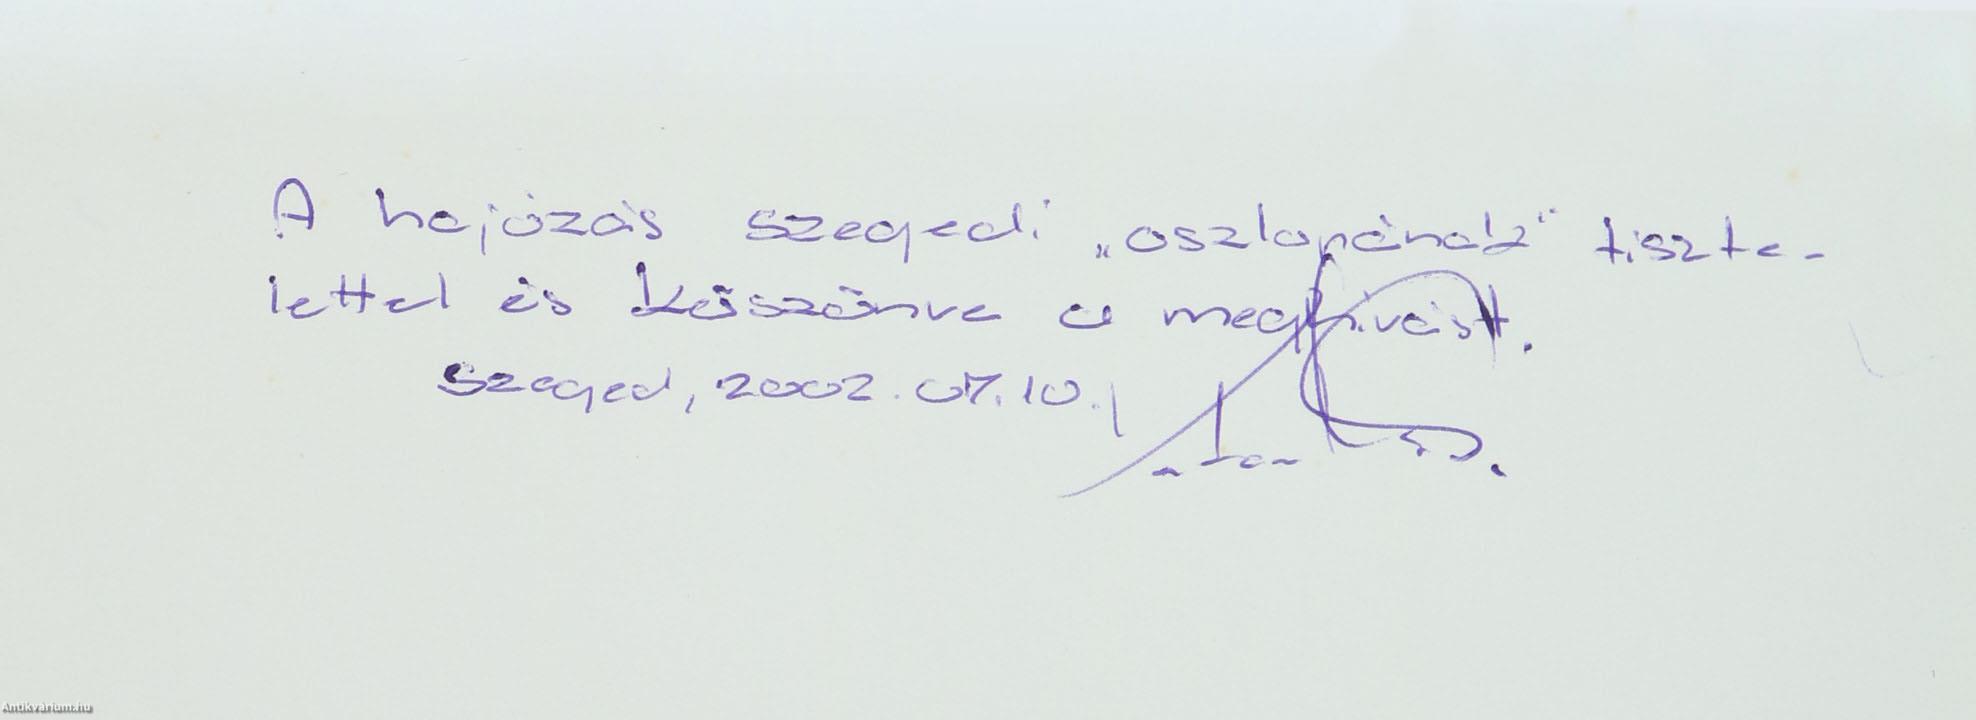 A hajózás szegedi „oszlopának” tiszte-
lettel és köszönve a meghívást.
Szeged, 2002. 07. 10.
Antikvárium.hu